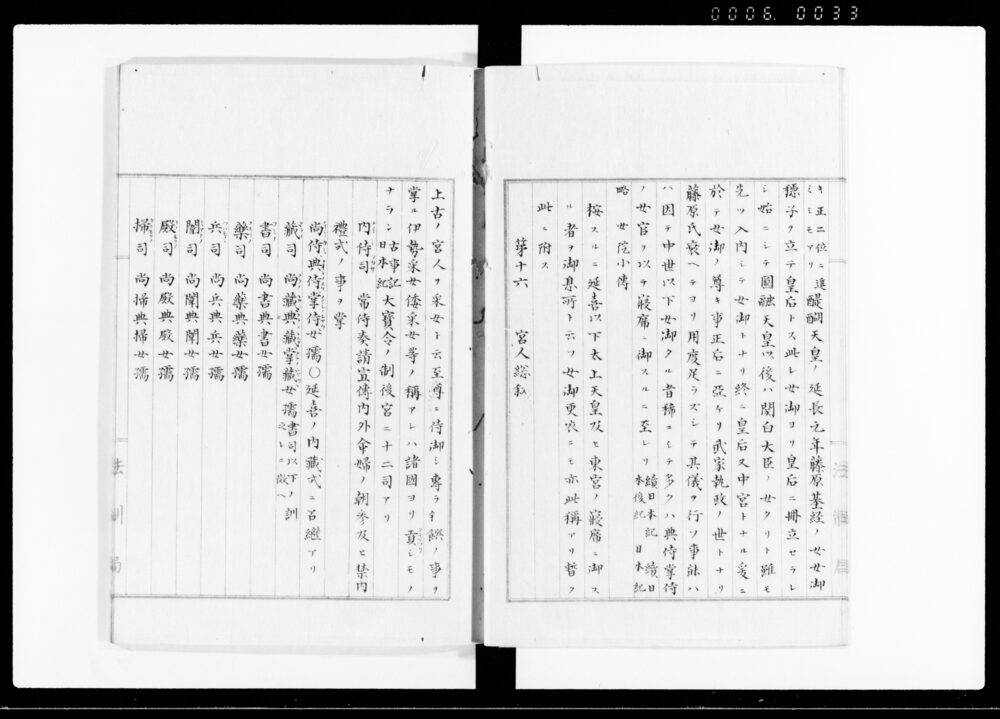 0006. 0033
キ正二位ニ追
ミミモアリ
醍醐天皇ノ延長元年藤原基經ノ女女御
穩子ヲ立テ皇后トス此レ女御ヨリ皇后ニ冊立セラレ
シ始ニシテ圓融天皇以後ハ関白大臣ノ女タリト雖モ
先ツ入内シテ女御トナリ終ニ皇后又中宮トナル爰ニ
於テ女御ノ尊キ事正后ニ亞ケリ武家執政ノ世トナリ
藤原氏衰ヘテヨリ用度足ラズシテ其儀ヲ行フ事能ハ
ハ因テ中世以下女御タル者稀ニシテ多クハ典侍掌侍
ノ女官ヲ以テ寢席ニ御スルニ至レリ
續日本紀 續日
本後紀 日本紀
略 女院小傳
按スルニ延喜以下太上天皇及ヒ東宮ノ寢席ニ御ス
ル者ヲ御息所ト云フ女御更衣ニモ亦此稱アリ暫ク
此ニ附ス
第十六 宮人総叙
上古ノ宮人ヲ采女ト云至尊ニ侍御シ專ラ饌ノ事ヲ
掌ル伊勢采女倭采女等ノ稱アレハ諸國ヨリ貢シモノ
ナラン
古事記
日本紀
大寶令ノ制後宮ニ十二司アリ
内侍司 常侍奏請宣傳内外命婦ノ朝参及ヒ禁内
禮式ノ事ヲ掌
尚侍典侍掌侍女孺〇延喜ノ内藏式ニ召繼アリ
藏司 尚藏典藏掌藏女孺
書司以下ノ訓
之レニ傚ヘ
書司 尚書典書女孺
藥司 尚藥典藥女孺
兵司 尚兵典兵女孺
闈司 尚闈典闈女孺
殿司 尚殿典殿女孺
掃司 尚掃典掃女孺